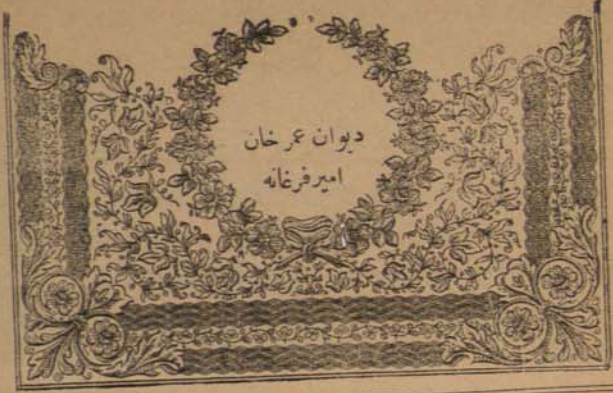 دیوان عمر خان
امیر فرغانه